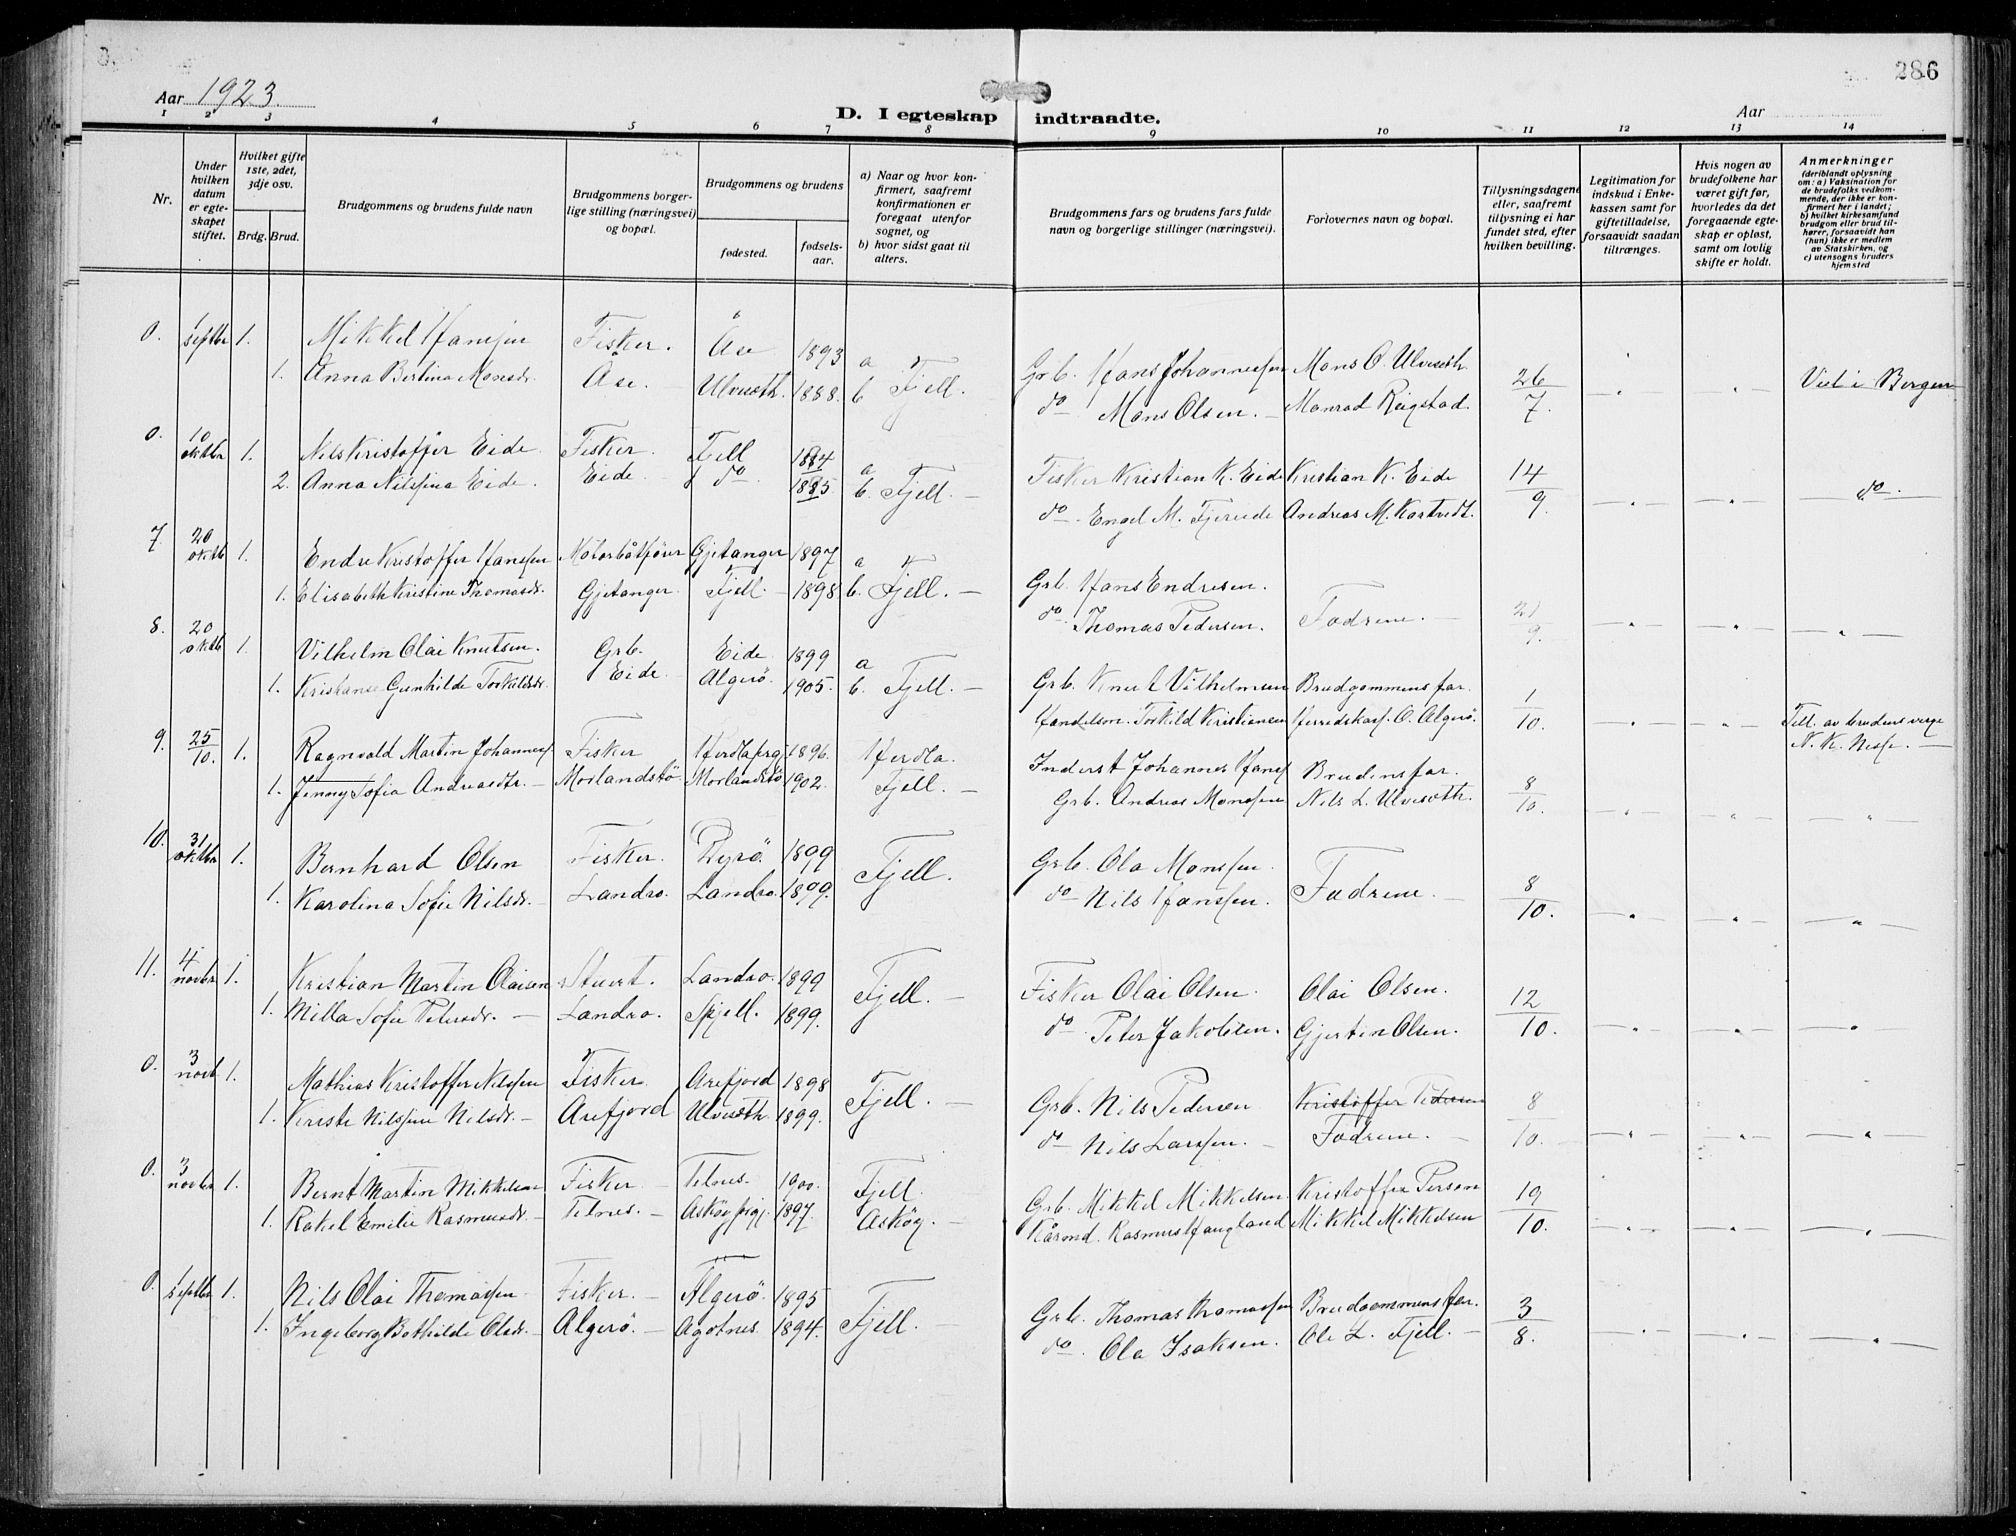 286
Aar 1923
Aar
D. I egteskap indtraadte.
1 2 3 4 5 6 7 8 9 10 11 12 13 14
Nr.
Under hvilken datum er egteskapet stiftet.
Hvilket gifte 1ste, 2det, 3dje osv.
Brdg. Brud.
Brudgommens og brudens fulde navn
Brudgommens borgerlige stilling (næringsvei) og bopæl.
Brudgommens og brudens
fødested.
fødselsaar.
a) Naar og hvor konfirmert, saafremt konfirmationen er foregaat utenfor sognet, og
b) hvor sidst gaat til alters.
Brudgommens fars og brudens fars fulde navn og borgerlige stillinger (næringsvei).
Forlovernes navn og bopæl.
Tillysningsdagene eller, saafremt tillysning ei har fundet sted, efter hvilken bevilling.
Legitimation for indskud i Enkekassen samt for giftetilladelse, forsaavidt saadan tiltrænges.
Hvis nogen av brudefolkene har været gift før, hvorledes da det foregaaende egteskap er opløst, samt om lovlig skifte er holdt.
Anmerkninger
(deriblandt oplysning om: a) Vaksination for de brudefolks vedkommende, der ikke er konfirmert her i landet; b) hvilket kirkesamfund brudgom eller brud tilhører, forsaavidt han (hun) ikke er medlem av Statskirken, og c) utensogns bruders hjemsted
0. 1 septbr 1. Mikkel Hansen Fisker. Åse 1893 a Grb. Hans Johannessen Mons O. Ulveseth 26/7. Viet i Bergen
1. Anna Bertina Monsdr. Åse. Ulveseth 1888. b Fjell. do Mons Olsen. Monrad Reigstad.
0. 10 oktbr 1. Nils Kristoffer Eide Fisker Fjell 1884 a Fisker Kristian K. Eide Kristian K. Eide 14/9. do
2. Anna Nilsina Eide. Eide. do 1885 b. Fjell. do Engel M. Fjereide Andreas M. Kartvedt.
7. 20 oktb 1. Endre Kristoffer Hanssen Motorbåtfører Gjetanger 1897 a Grb. Hans Endresen.
1. Elisabeth Kristine Thomasdr. Gjetanger Fjell. 1898 b. Fjell. do Thomas Pedersen. Fædrene. 21/9.
8. 20 oktb 1. Vilhelm Olai Knutsen. Grb. Eide 1899 a Grb. Knut Vilhelmsen Brudgommens far. 1/10.
1. Kristanse Gunhilde Torkildsdr. Eide. Algerö. 1905. b. Fjell. Handelsm. Torkild Kristiansen Herredskass. O. Algerö. Till. av brudens verge N. K. Nesse.
9. 25/10. 1. Ragnvald Martin Johanness. Fisker Herdla prgj. 1896. Herdla. Inderst Johannes Hanss Brudens far. 8/10.
1. Jenny Sofia Andreasdtr. Morlandstö Morlandstö 1902. Fjell. Grb. Andreas Monssen Nils L. Ulveseth.
10. 31 oktbr 1. Bernhard Olsen Fisker. Tyrö. 1899 Fjell. Grb. Ola Monssen. Fædrene. 8/10.
1. Karolina Sofie Nilsdr. Landro. Landro. 1899. do Nils Hanssen.
11. 4 novbr 1. Kristian Martin Olaisen Stuert. Landro. 1899 Fjell. Fisker Olai Olsen. Olai Olsen. 12/10.
1. Milla Sofie Petersdr. Landro. Skjell. 1899. do Peter Jakobsen. Gjertin Olsen.
0. 3 novb 1. Mathias Kristoffer Nilssen Fisker Arefjord 1898 Fjell. Grb. Nils Pedersen Kristoffer Pedersen 8/10.
1. Kirsti Nilssine Nilsdr. Arefjord Ulveseth 1899. do Nils Larssen. Fædrene.
0. 3 novbr 1. Bernt Martin Mikkelsen Fisker Telnes. 1900. Fjell. Grb. Mikkel Mikkelsen Kristoffer Person 19/10.
1. Rakel Emelie Rasmusdr. Telnes. Asköy prgj. 1897. Asköy. Kårmd. Rasmus Haugland Mikkel Mikkelsen
0. 1 septbr 1. Nils Olai Thomassen Fisker. Algerö. 1895 Fjell. Grb. Thomas Thomassen Brudgommens far. 3/8.
1. Ingeborg Bothilde Olsdr. Algerö. Agotnes. 1894. do. Ola Isaksen. Ole L. Fjell.